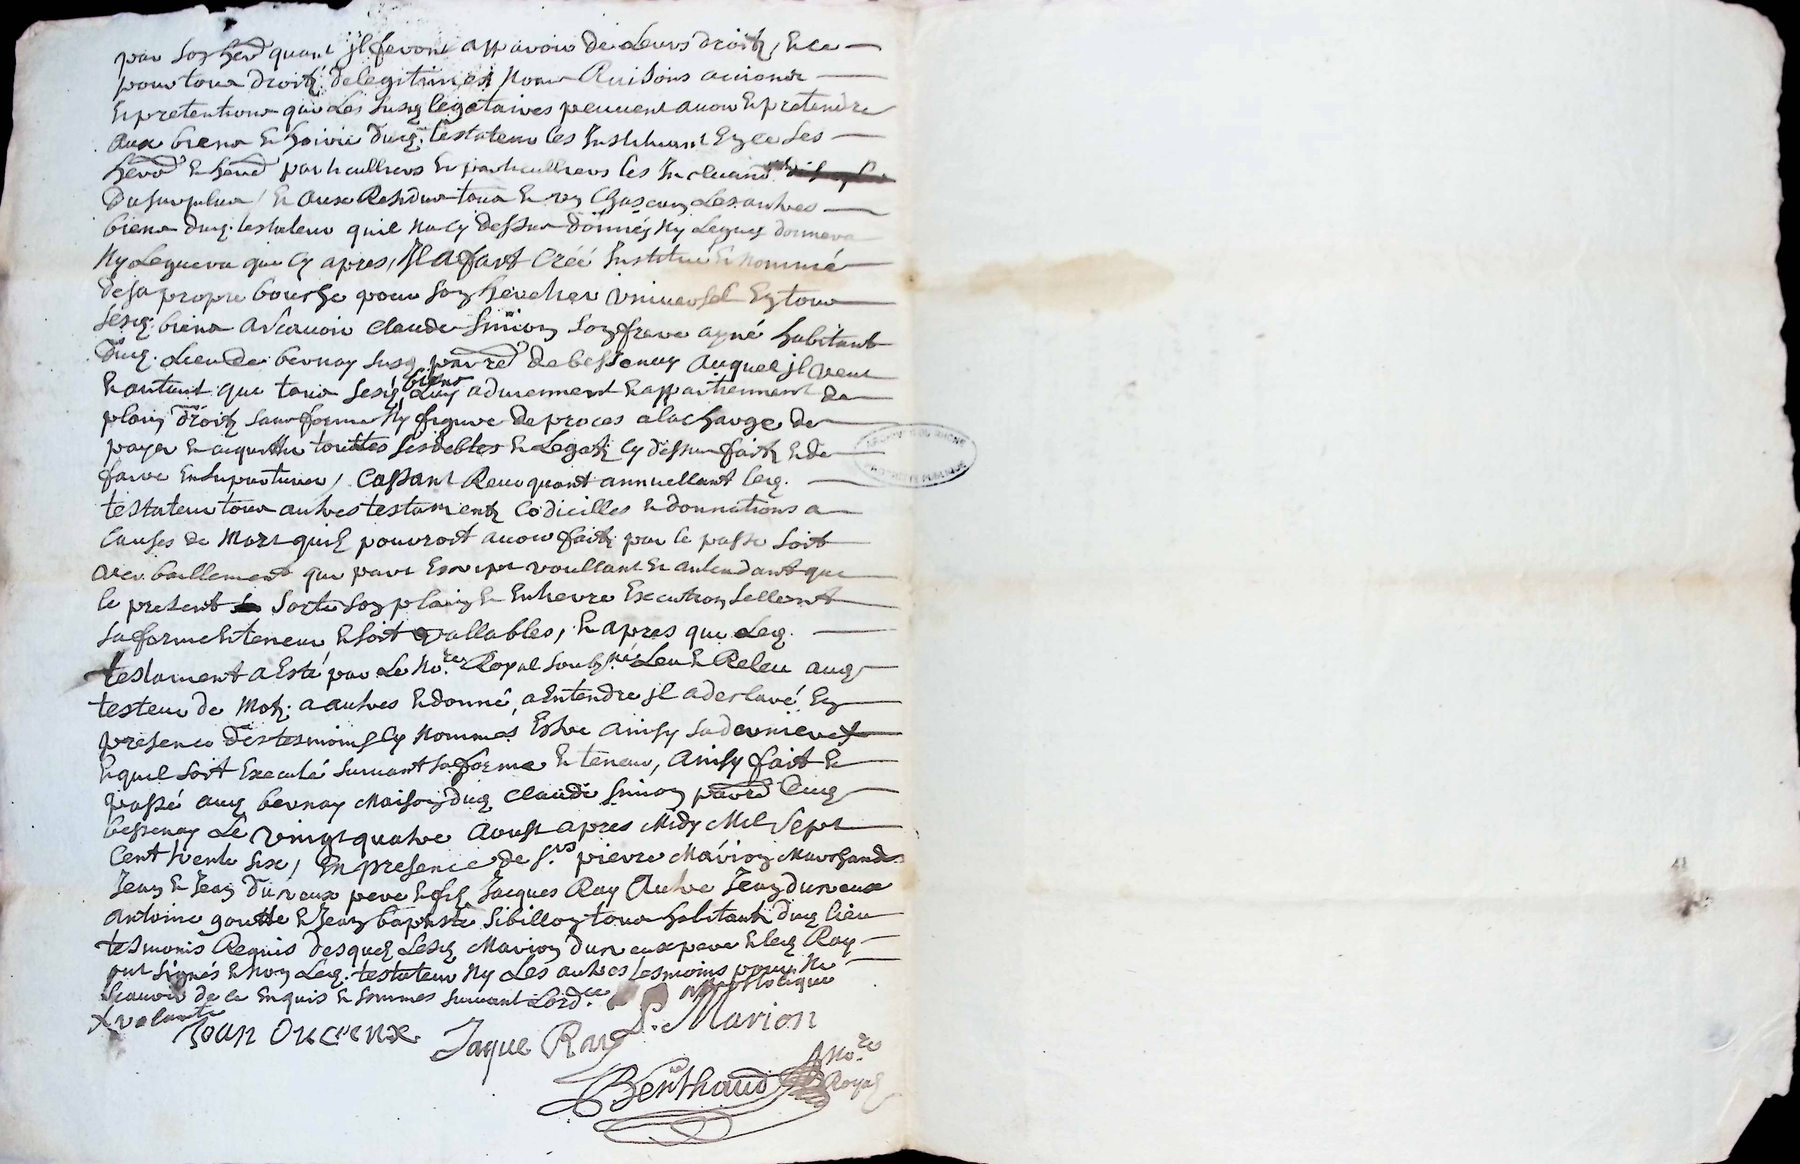 par son herēd quant jl feront apparoir de Leurs droitz, Et ce
pour tous droitz de legitimes Noms Raisons actions
Et pretentions que Les susd legataires peuvent avoir Et pretendre
Aux biens Et hoirie dud. testateur les Instituant En ce Ses
herēd Et herēd particulliers Et particullieres les Excluant
Du surplus, Et au Residu tous Et un Chascung Les autres
biens dud. testateur quil Na Cy dessus donnés Ny Legués donnera
Ny Leguera que Cy apres, Jl a fait Créé Institué Et Nommé
De sa propre bouche pour son heretier Universel En tous
Sesd. biens a scavoir Claude Simon son frere ayné habitant
Dud. Lieu de bernay susd. parrē de bessenay Auquel jl veut
Et antant que tous sesd. biens Luy adviennent Et appartiennent de
plain droitz sans forme Ny figure de proces a la charge de
payer Et acquitter touttes ses debtes Et Legatz Cy dessus faitz Et de
faire Ensepulturer, Cassant Revoquant annullant led.
testateur tous autres testamentz Codicilles Et donnations a
Causes de Mort quil pouvroit avoir faitz par le passé soit
verballement que part Escript voullant Et antendant que
le present sorte son plain Et Entiere Execution sellont
sa forme Et teneur Et soit vallables, Et apres que Led.
testament a Esté par Le No.re Royal soubz.né Leu Et Releu aud
testeur de Motz a autres Et donné a Entendre jl a declaré En
presence des tesmoins Cy Nommés Estre Ainsy sa derniere X
Et quil soit Executé suivant sa forme Et teneur, Ainsy fait Et
passé aud bernay Maison dud Claude Simon parrē dud
bessenay Le vingt quatre Aoust apres Midy Mil Sept
Cent trente six, En presence de S.rs pierre Marion Marchand
Jean Et Jean Dureux pere Et fils Jacques Ray Autre Jean dureux
Antoine goutte Et Jean baptiste Sibillon tous habitants dud lieu
tesmoins Requis desquels Lesd. Marion Dureux pere Et led Ray
ont signés Et Non Led. testateur Ny Les autres tesmoins pour Ne
Scavoir de ce Enquis Et sommes suivant L'ord.ce
X volonté
Jean Ducreux Jaque Ray P. Marion
Berthaud No.re
Royal